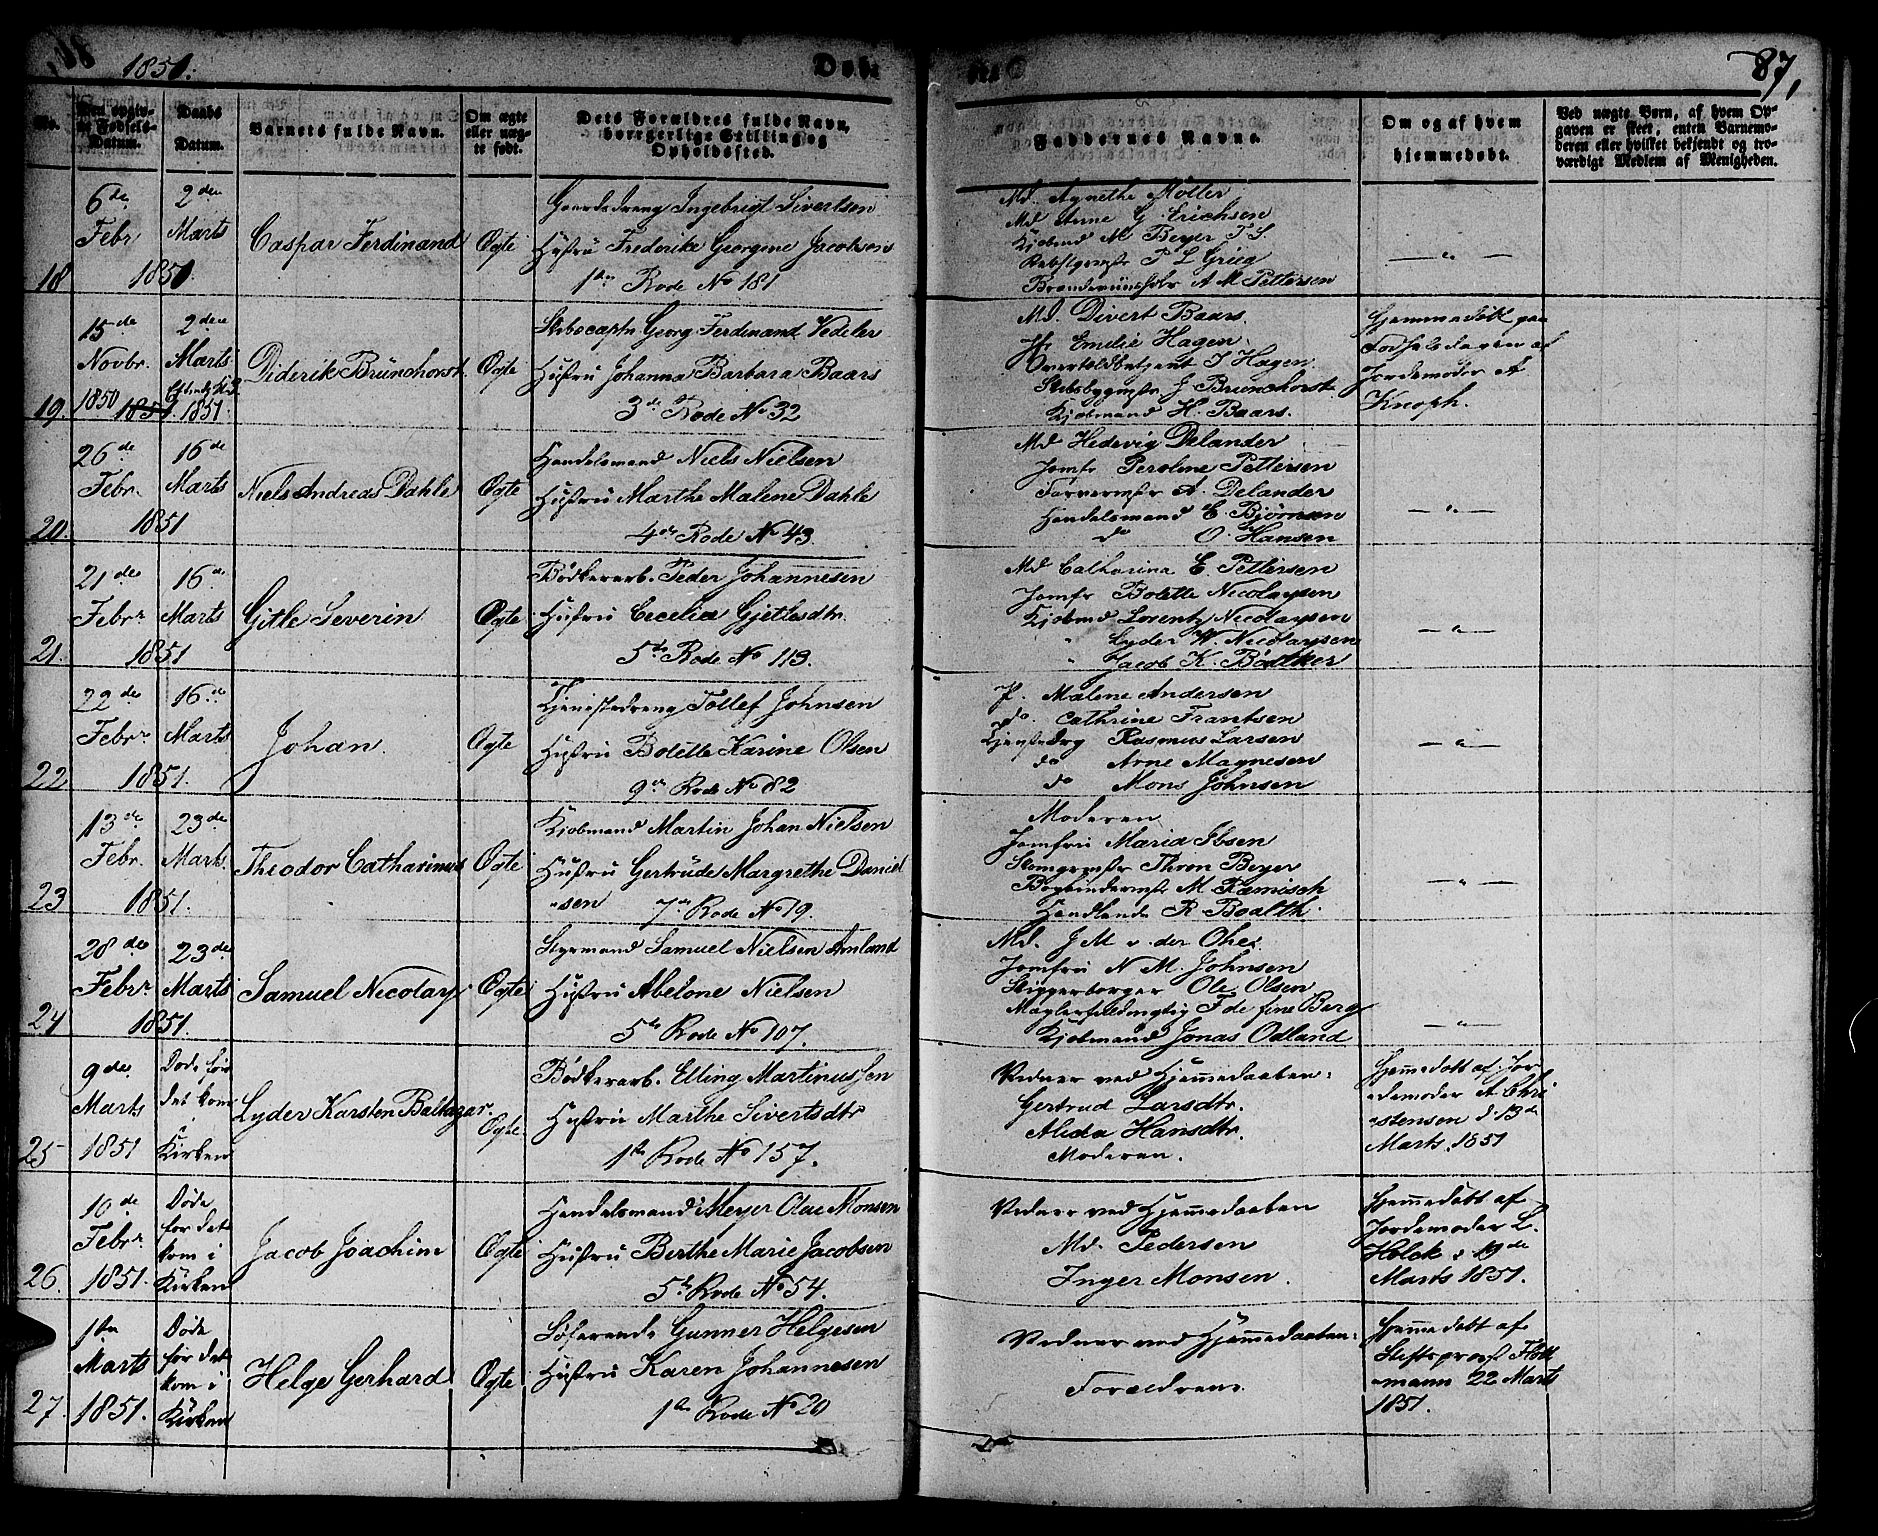 1851.
Døbte
87,
No.
Den opgivne Fødsels-Datum.
Daabs Datum.
Barnets fulde Navn.
Om ægte eller uægte født.
Dets Forældres fulde Navn, borgerlige Stilling og Opholdssted.
Faddernes Navne.
Om og af hvem hjemmedøbt.
Ved uægte Børn, af hvem Opgaven er skeet, enten Barnemoderen eller hvilket bekjendt og troværdigt Medlem af Menigheden.
18
6de Febr 1851
2den Marts
Caspar Ferdinand
Ægte
Gaardsdreng Ingebrigt Sivertsen
Hustru Frederike Georgine Jacobsen
1ste Rode No 181
Md. Agnethe Møller
Md Anne G. Erichsen
Kjøbmd M Beyer T. S.
P L Grieg
A M Pettersen
— " —
19.
15de Novbr. 1850
2den Marts 1851.
Diderik Brünchorst.
Ægte
Skibscaptn. Georg Ferdinand Vedeler
Hustru Johanna Barbara Baars
3de Rode No 32
Md. Divert Baars.
Jfr Emilie Hagen.
Overtoldbetjent J Hagen.
Skibsbygmstr J Brunchorst
Kjøbmand H. Baars.
Hjemmedøbt paa
Fødselsdagen af
Jordemoder A
Knoph.
20.
26de Febr. 1851
16de Marts
Niels Andreas Dahle
Ægte
Handelsmand Niels Nielsen
Hustru Marthe Malene Dahle
4de Rode No 43
Md Hedevig Delander
Jomfr Peroline Pettersen
Farvermstr A. Delander
Handelsmand E. Bjørnsen
do O. Hansen
— " —
21.
21de Febr 1851
16de Marts
Gitle Severin
Ægte
Bødkerarb. Peder Johannesen
Hustru Cecelia Gjetlesdtr.
5te Rode No 113.
Md Catharina E. Pettersen
Jomfr Bolette Nicolaysen
Kjøbmd Lorentz Nicolaysen
" Lyder W. Nicolaysen
" Jacob K. Bøttker
— " —
22
22de Febr. 1851.
16de Marts
Johan.
Ægte
Tjenestedreng Tollef Johnsen
Hustru Bolette Karine Olsen
9de Rode No 82
P. Malene Andersen
do. Cathrine Frantsen
Tjenstedrg Rasmus Larsen
do Arne Magnesen
do Mons Johnsen
— " —
23
13de Febr. 1851.
23de Marts
Theodor Catharinus
Ægte
Kjøbmand Martin Johan Nielsen
Hustru Gertrude Margrethe Daniel
"sen 7de Rode No 19.
Moderen
Jomfru Maria Ibsen
Thron Beyer
Bogbindermstr M. Ramisch
Handlende R Boalth.
— " —
24
28de Febr. 1851.
23de Marts
Samuel Nicolay
Ægte
Styrmand Samuel Nielsen Amland
Hustru Abelone Nielsen
5te Rode No 107.
Md. J M v. der Ohe.
Jomfru N M. Johnsen
Skipperborger Ole Olsen
Maglerfuldmægtig F de fine Berg
Kjøbmand Jonas Odland
— " —
25
9de Marts 1851
Døde før det kom i Kirken
Lyder Karsten Baltazar.
Ægte
Bødkerarb. Elling Martinussen
Hustru Marthe Sivertsdtr
1ste Rode No 157.
Vidner ved Hjemmedaaben:
Gertrud Larsdtr.
Aleda Hansdtr.
Moderen.
Hjemmedøbt af Jor-
demoder A Chri
"stensen d. 13de
Marts. 1851
26.
10de Febr. 1851.
Døde før det kom i Kirken
Jacob Joachim
Ægte
Handelsmand Meyer Olai Monsen
Hustru Berthe Marie Jacobsen
5te Rode No 54.
Vidner ved Hjemmedaaben
Md. Pedersen
Inger Monsen.
Hjemmedøbt af
Jordemoder L.
Holck d 19de
Marts 1851.
27.
1ste Marts 1851.
Døde før det kom i Kirken
Helge Gerhard
Ægte
Søfarende Gunner Helgesen
Hustru Karen Johannesen
1ste Rode No 20
Vidner ved Hjemmedaaben:
Forældrene.
Hjemmedøbt af
Stiftsprovst Flott
"mann 22 Marts
1851.